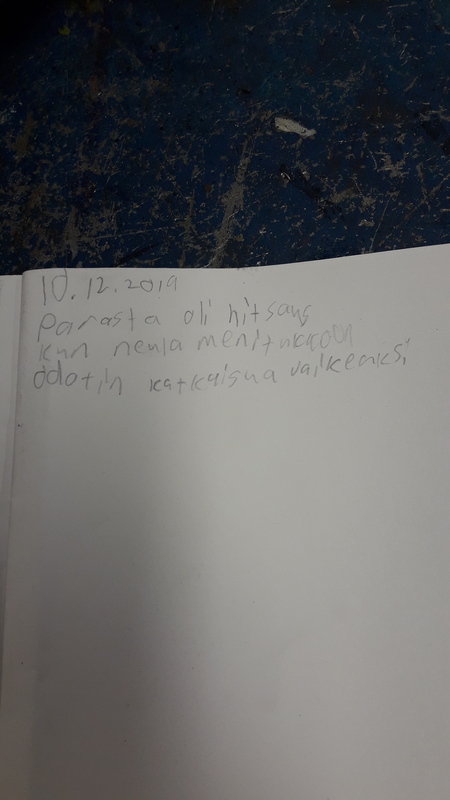 10.12.2019
Parasta oli hitsaus
kun neula meni tukkoon
odotin katkaisua vaikeaksi